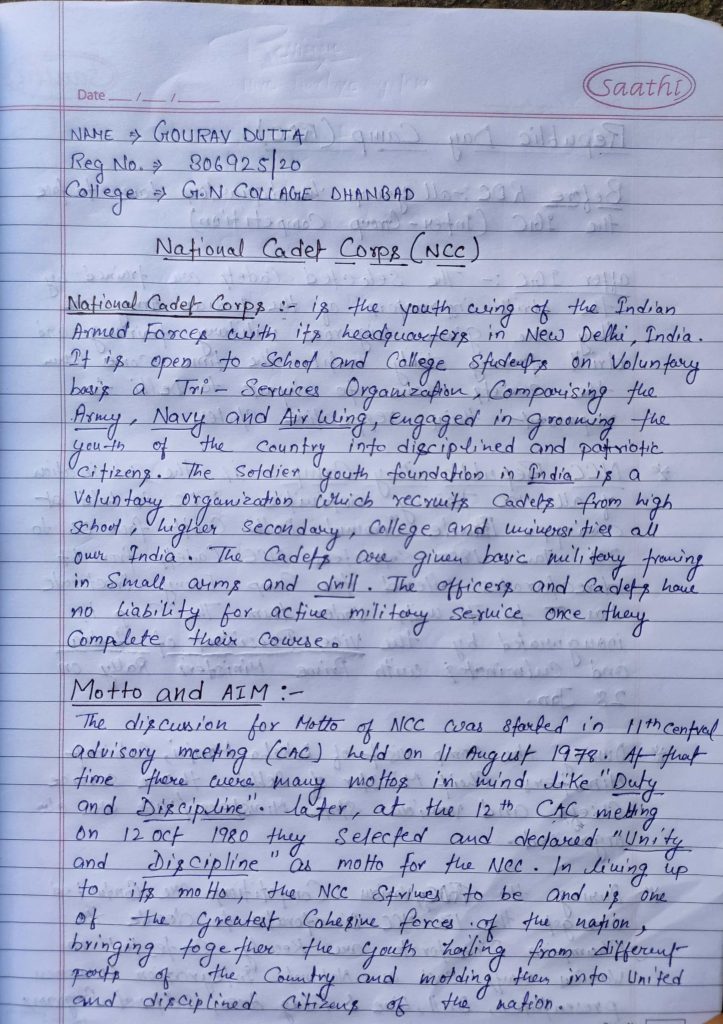 Saathi
Date __/__/____
NAME ⇒ GOURAV DUTTA
Reg No. ⇒ 306925/20
College ⇒ G.N COLLAGE DHANBAD
National Cadet Corps (NCC)
National Cadet Corps :- is the youth wing of the Indian
Armed Forces with its headquarters in New Delhi, India.
It is open to School and College Students on Voluntary
basis a Tri - Services Organization, Comparising the
Army, Navy and Air Wing, engaged in grooming the
youth of the country into disciplined and patriotic
citizens. The Soldier youth foundation in India is a
Voluntary organization which recruits Cadets from high
school, higher secondary, College and universities all
over India. The Cadets are given basic military traning
in Small arms and drill. The officers and Cadets have
no liability for active military service once they
Complete their Course.
Motto and AIM :-
The discussion for Motto of NCC was started in 11th central
advisory meeting (CAC) held on 11 August 1978. At that
time there were many mottos in mind like "Duty
and Discipline". later, at the 12th CAC metting
on 12 oct 1980 they Selected and declared "Unity
and Discipline" as motto for the NCC. In living up
to its motto, the NCC Strives to be and is one
of the Greatest Cohesive forces of the nation,
bringing together the youth hailing from different
parts of the Country and molding them into United
and disciplined Citizens of the nation.